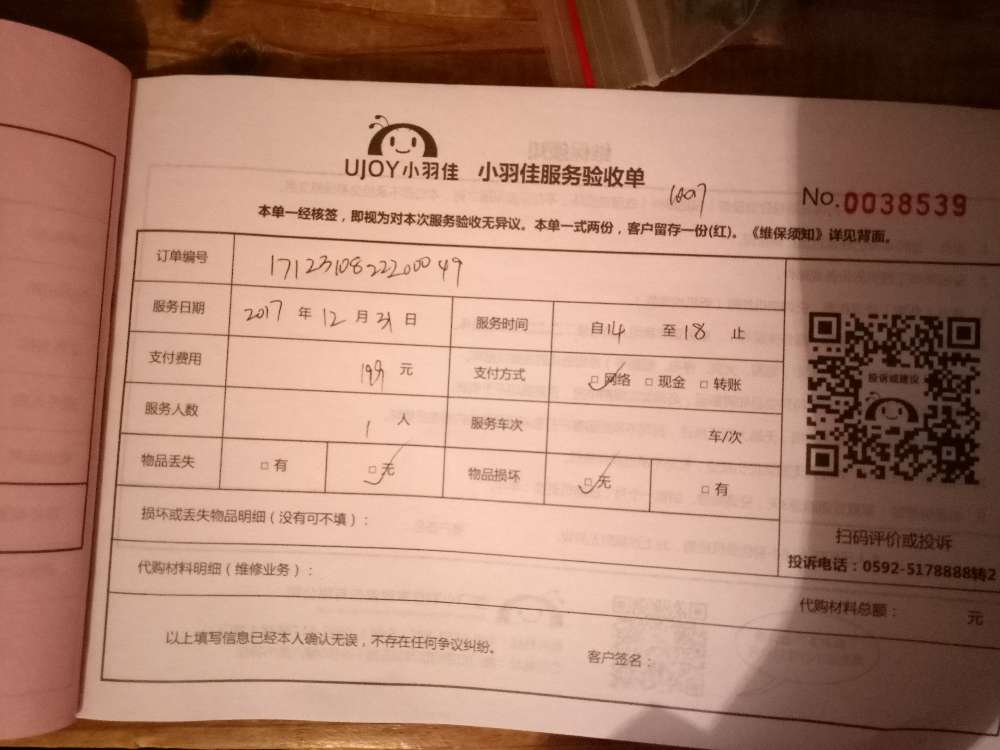 UJOY小羽佳 小羽佳服务验收单
No.0038539
本单一经核签，即视为对本次服务验收无异议。本单一式两份，客户留存一份(红)。《维保须知》详见背面。
订单编号 17123108222000049
服务日期 2017 年 12 月 31 日 服务时间 自14 至18 止
支付费用 199 元 支付方式 □网络 □现金 □转账
服务人数 1 人 服务车次 车/次
物品丢失 □有 □无 物品损坏 □无 □有
投诉或建议
损坏或丢失物品明细（没有可不填）：
扫码评价或投诉
投诉电话：0592-5178888转2
代购材料明细（维修业务）：
代购材料总额： 元
以上填写信息已经本人确认无误，不存在任何争议纠纷。
客户签名：